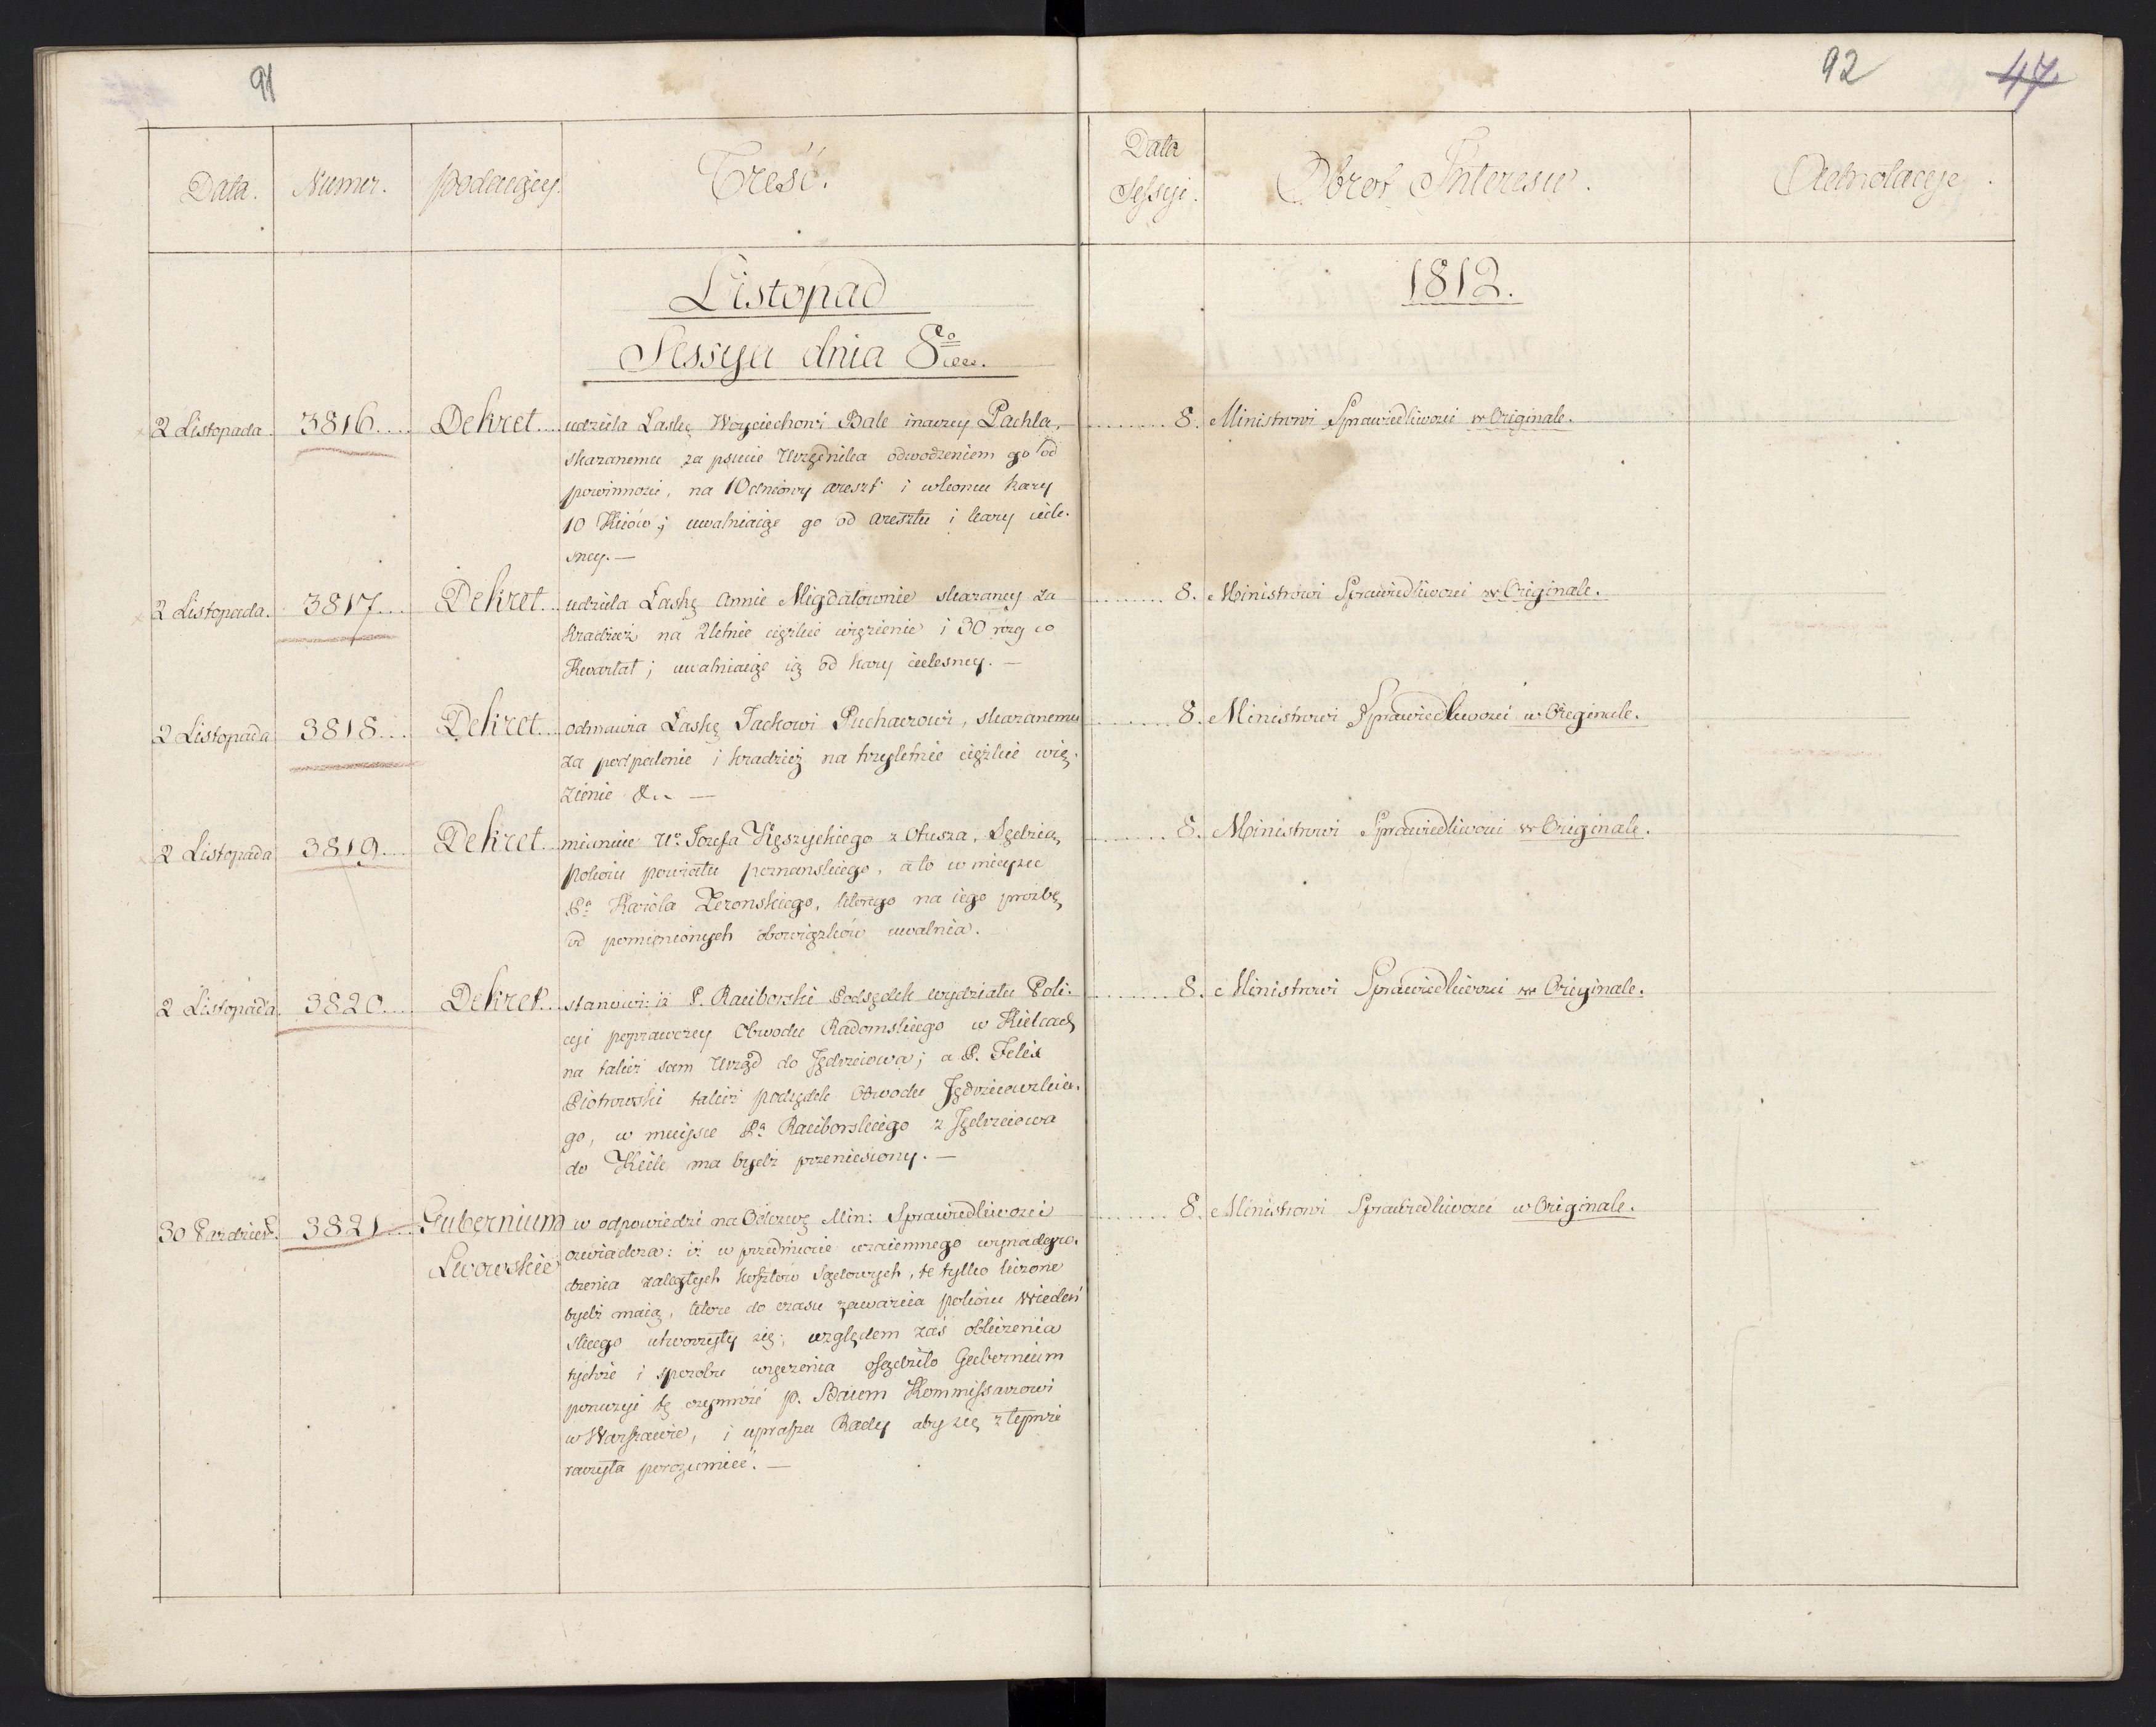 91
Data. Numer. Podaiący. Treść.
Listopad
Sessya dnia 8go
2 Listopada. 3816.... Dekret.... udziela Łaskę Woyciechowi Bale inaczey Pachla,
skazanemu za psucie Urzędnika odwodzeniem go od
powinności, na 10dniowy areszt i w końcu kary
10 Kiiów; uwalniaiąc go od aresztu i kary ciele-
sney. —
2 Listopada. 3817.... Dekret... udziela Łaskę Annie Migdałownie skazaney za
Kradzież na 2letnie ciężkie więzienie i 30 rózg co
Kwartał; uwalniaiąc ią od kary cielesney. —
2 Listopada 3818... Dekret... odmawia Łaskę Jackowi Puchaczowi, skazanemu
za podpalenie i kradzież na trzyletnie ciężkie wię-
zienie &.. —
2 Listopada 3819.... Dekret... mianuie Ur. Jozefa Kęszyckiego z Otusza, Sędzią
pokoiu powiatu poznanskiego, a to w mieysce
Pa Karola Zeronskiego, ktorego na iego prozbę
od pomienionych obowiązków uwalnia.
2 Listopada. 3820.... Dekret... stanowi: iż P. Raciborski Podsędek wydziału Poli-
cyi poprawczey Obwodu Radomskiego w Kielcach
na takiż sam Urząd do Jędrzeiowa; a P. Felix
Piotrowski takiż podsędek Obwodu Jędrzeiowskie-
go, w mieysce Pa Raciborskiego z Jędrzeiowa
do Kielc ma bydź przeniesiony. —
30 Pazdzier. 3821.... Gubernium w odpowiedzi na Odezwę Min: Sprawiedliwości
Lwowskie oswiadcza: iż w przedmiocie wzaiemnego wynadgro-
dzenia zaległych kosztów Sądowych, te tylko liczone
bydź maią, które do czasu zawarcia pokoiu Wiedeń
skiego utworzyły się; względem zaś obliczenia
tychże i sposobu uiszczenia osądziło Gubernium
poruczyć tę czynność P. Baum Kommissarzowi
w Warszawie, i uprasza Rady aby się z tymże
raczyła porozumieć. —
92 47
Data Sessyi. Obrot Interesu. Adnotacye.
1812.
........ 8. Ministrowi Sprawiedliwości w Originale.
........ 8. Ministrowi Sprawiedliwości w Originale.
........ 8. Ministrowi Sprawiedliwości w Originale.
........ 8. Ministrowi Sprawiedliwości w Originale.
........ 8. Ministrowi Sprawiedliwości w Originale.
........ 8. Ministrowi Sprawiedliwości w Originale.